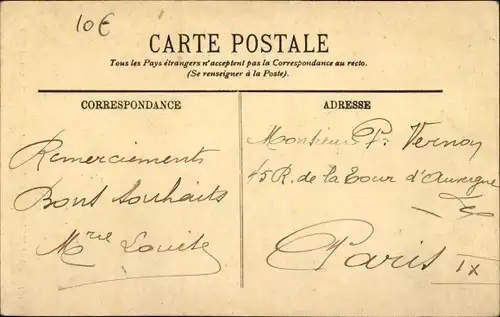 10€
CARTE POSTALE
Tous les Pays étrangers n'acceptent pas la Correspondance au recto.
(Se renseigner à la Poste).
CORRESPONDANCE
ADRESSE
Remerciements
Bons souhaits
Mrie Louise
Monsieur P. Vernon
45 R. de la Tour d'Auvergne
Paris IX